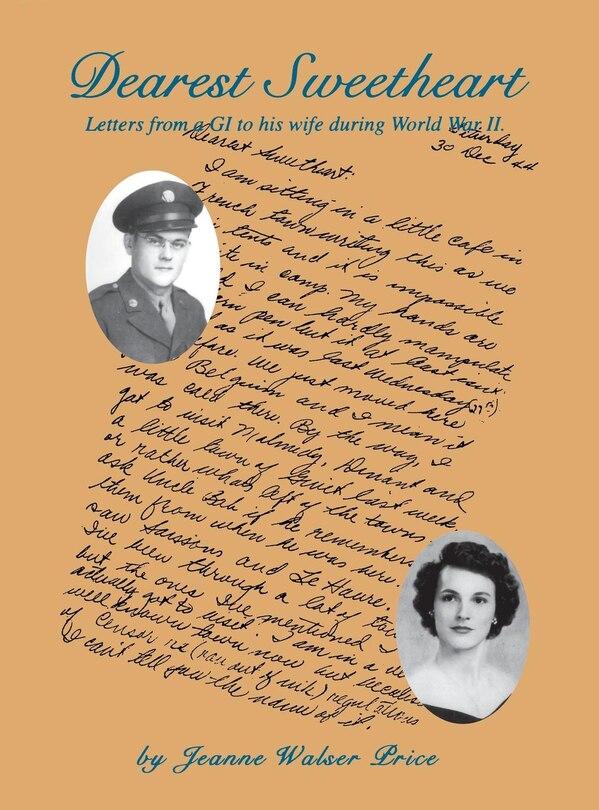 Dearest Sweetheart
Letters from a GI to his wife during World War II.
Saturday
30 Dec 44
Dearest Sweetheart:
I am sitting in a little cafe in
French town writing this as we
tents and it is impossible
te in camp. My hands are
d I can hardly manipulate
pen but it at least isn't
as it was last Wednesday (27th)
fore. We just moved here
Belguim and I mean it
was cold there. By the way, I
got to visit Malmedy, Dinant and
a little town of Givet last week
or rather whats left of the towns.
ask Uncle Bob if he remembers
them from when he was here.
saw Soissons and Le Havre.
I've been through a lot of to
but the ones I've mentioned I
actually got to visit. I am in a
well known town now but because
of Censor rs (ran out of ink) regulations
I can't tell you the name of it.
by Jeanne Walser Price